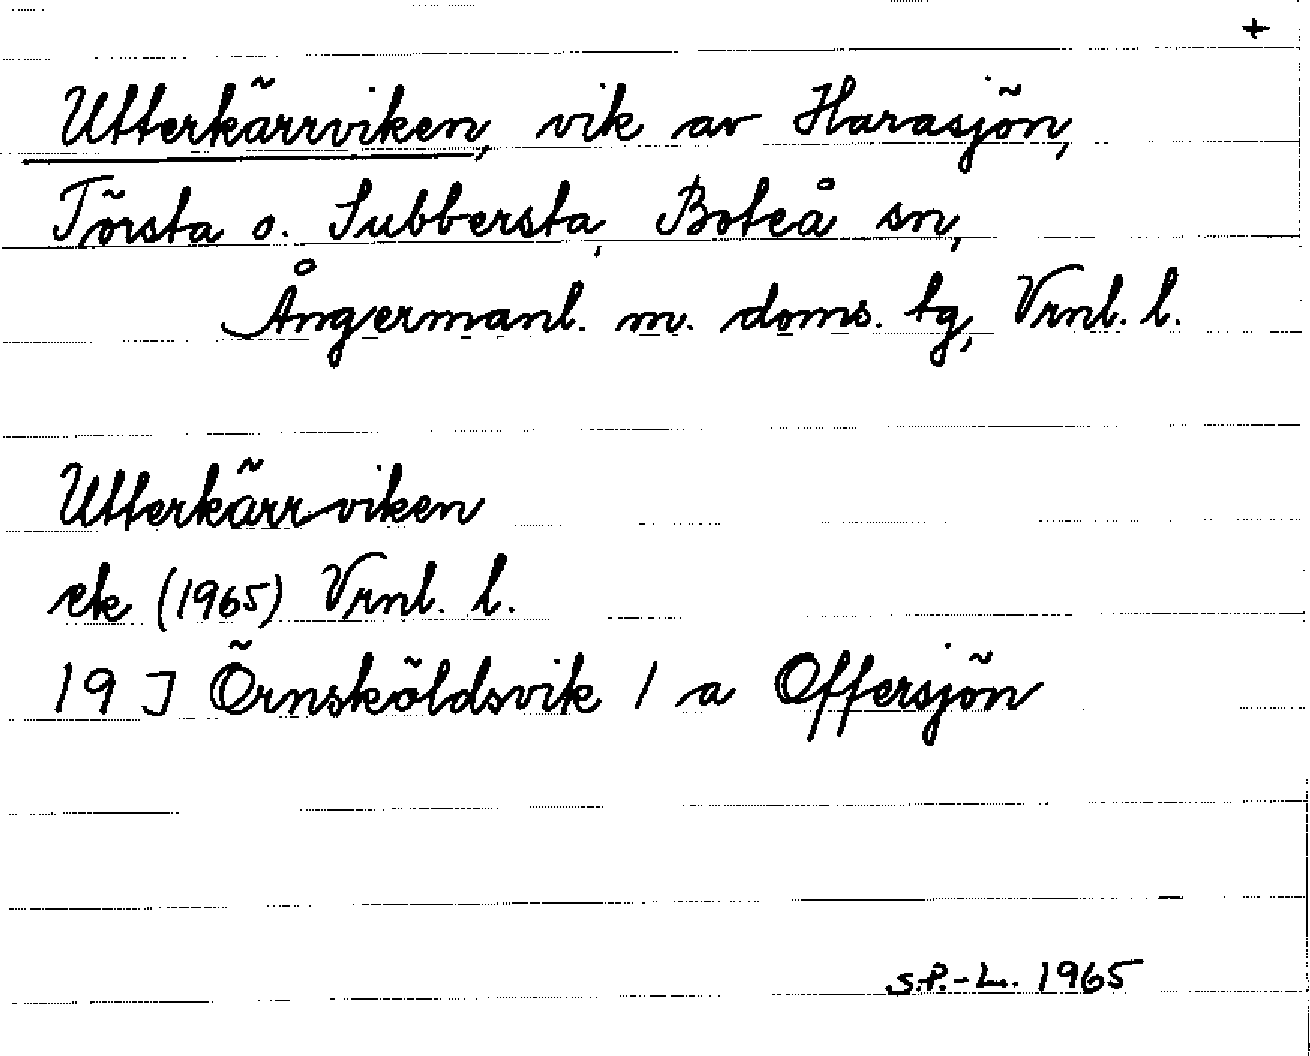 +
Utterkärrviken, vik av Harasjön,
Törsta o. Subbersta, Boteå sn,
Ångermanl. m. doms. tg, Vrnl. l.
Utterkärrviken
ek (1965) Vrnl. l.
19 J Örnsköldsvik 1 a Offersjön
S.P.-L. 1965